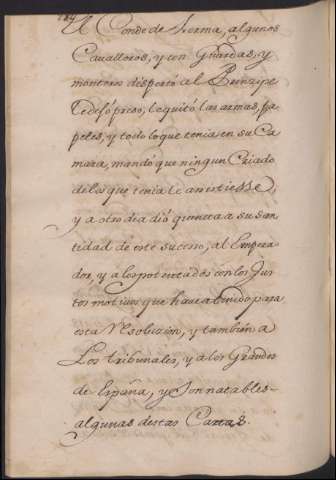 El Conde de Lerma, algunos
Cavalleros, y con Guardas, y
monteros despertó al Principe
le quitó las armas, pa
peles, y todo lo que tenia en su Ca
mara, mandó que ningun Criado
de los que tenia le assistiesse
y a otro dia dió quenta a su San
tidad de este sucesso, al Empera
dor, y a los potentados con los Jus
tos motivos que havia tenido para
esta Resoluzion, y tambien a
Los tribunales, y a los Grandes
de España, y son notables
algunas destas Cartas.